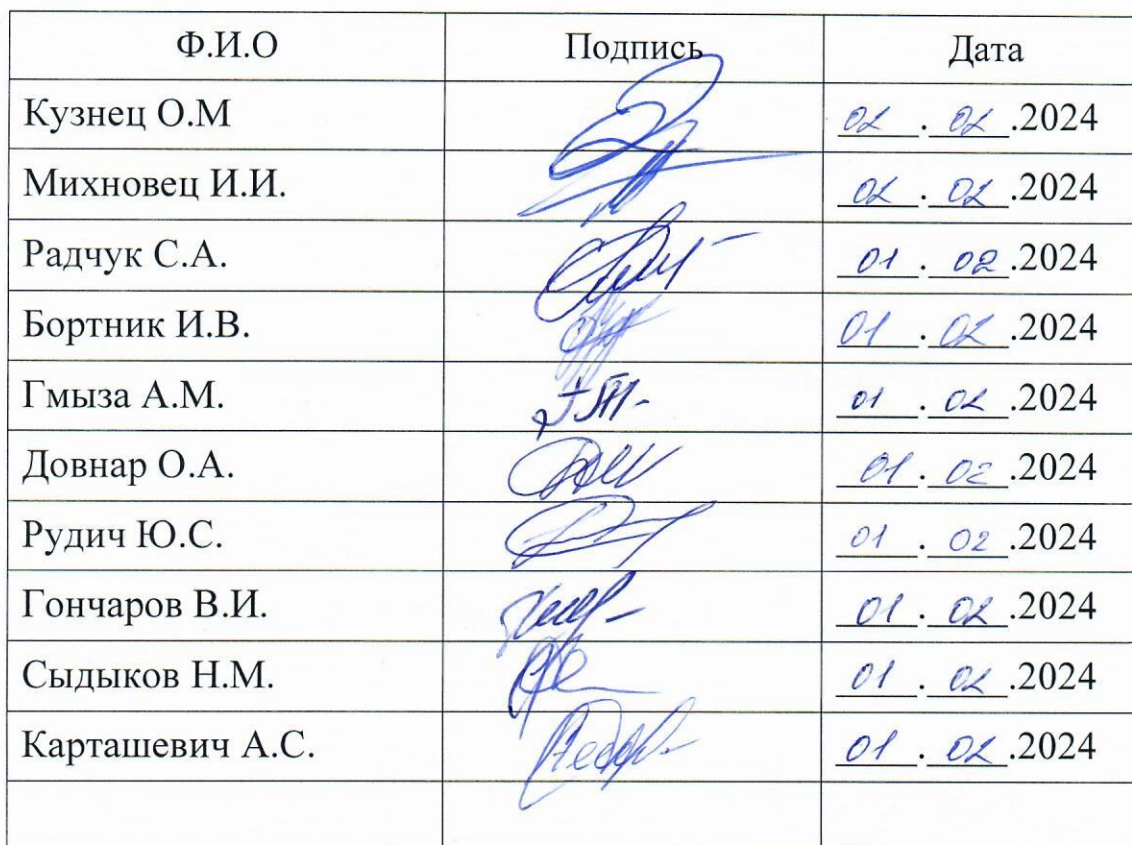 Ф.И.О Подпись Дата
Кузнец О.М 02.02.2024
Михновец И.И. 02.02.2024
Радчук С.А. 01.02.2024
Бортник И.В. 01.02.2024
Гмыза А.М. 01.02.2024
Довнар О.А. 01.02.2024
Рудич Ю.С. 01.02.2024
Гончаров В.И. 01.02.2024
Сыдыков Н.М. 01.02.2024
Карташевич А.С. 01.02.2024